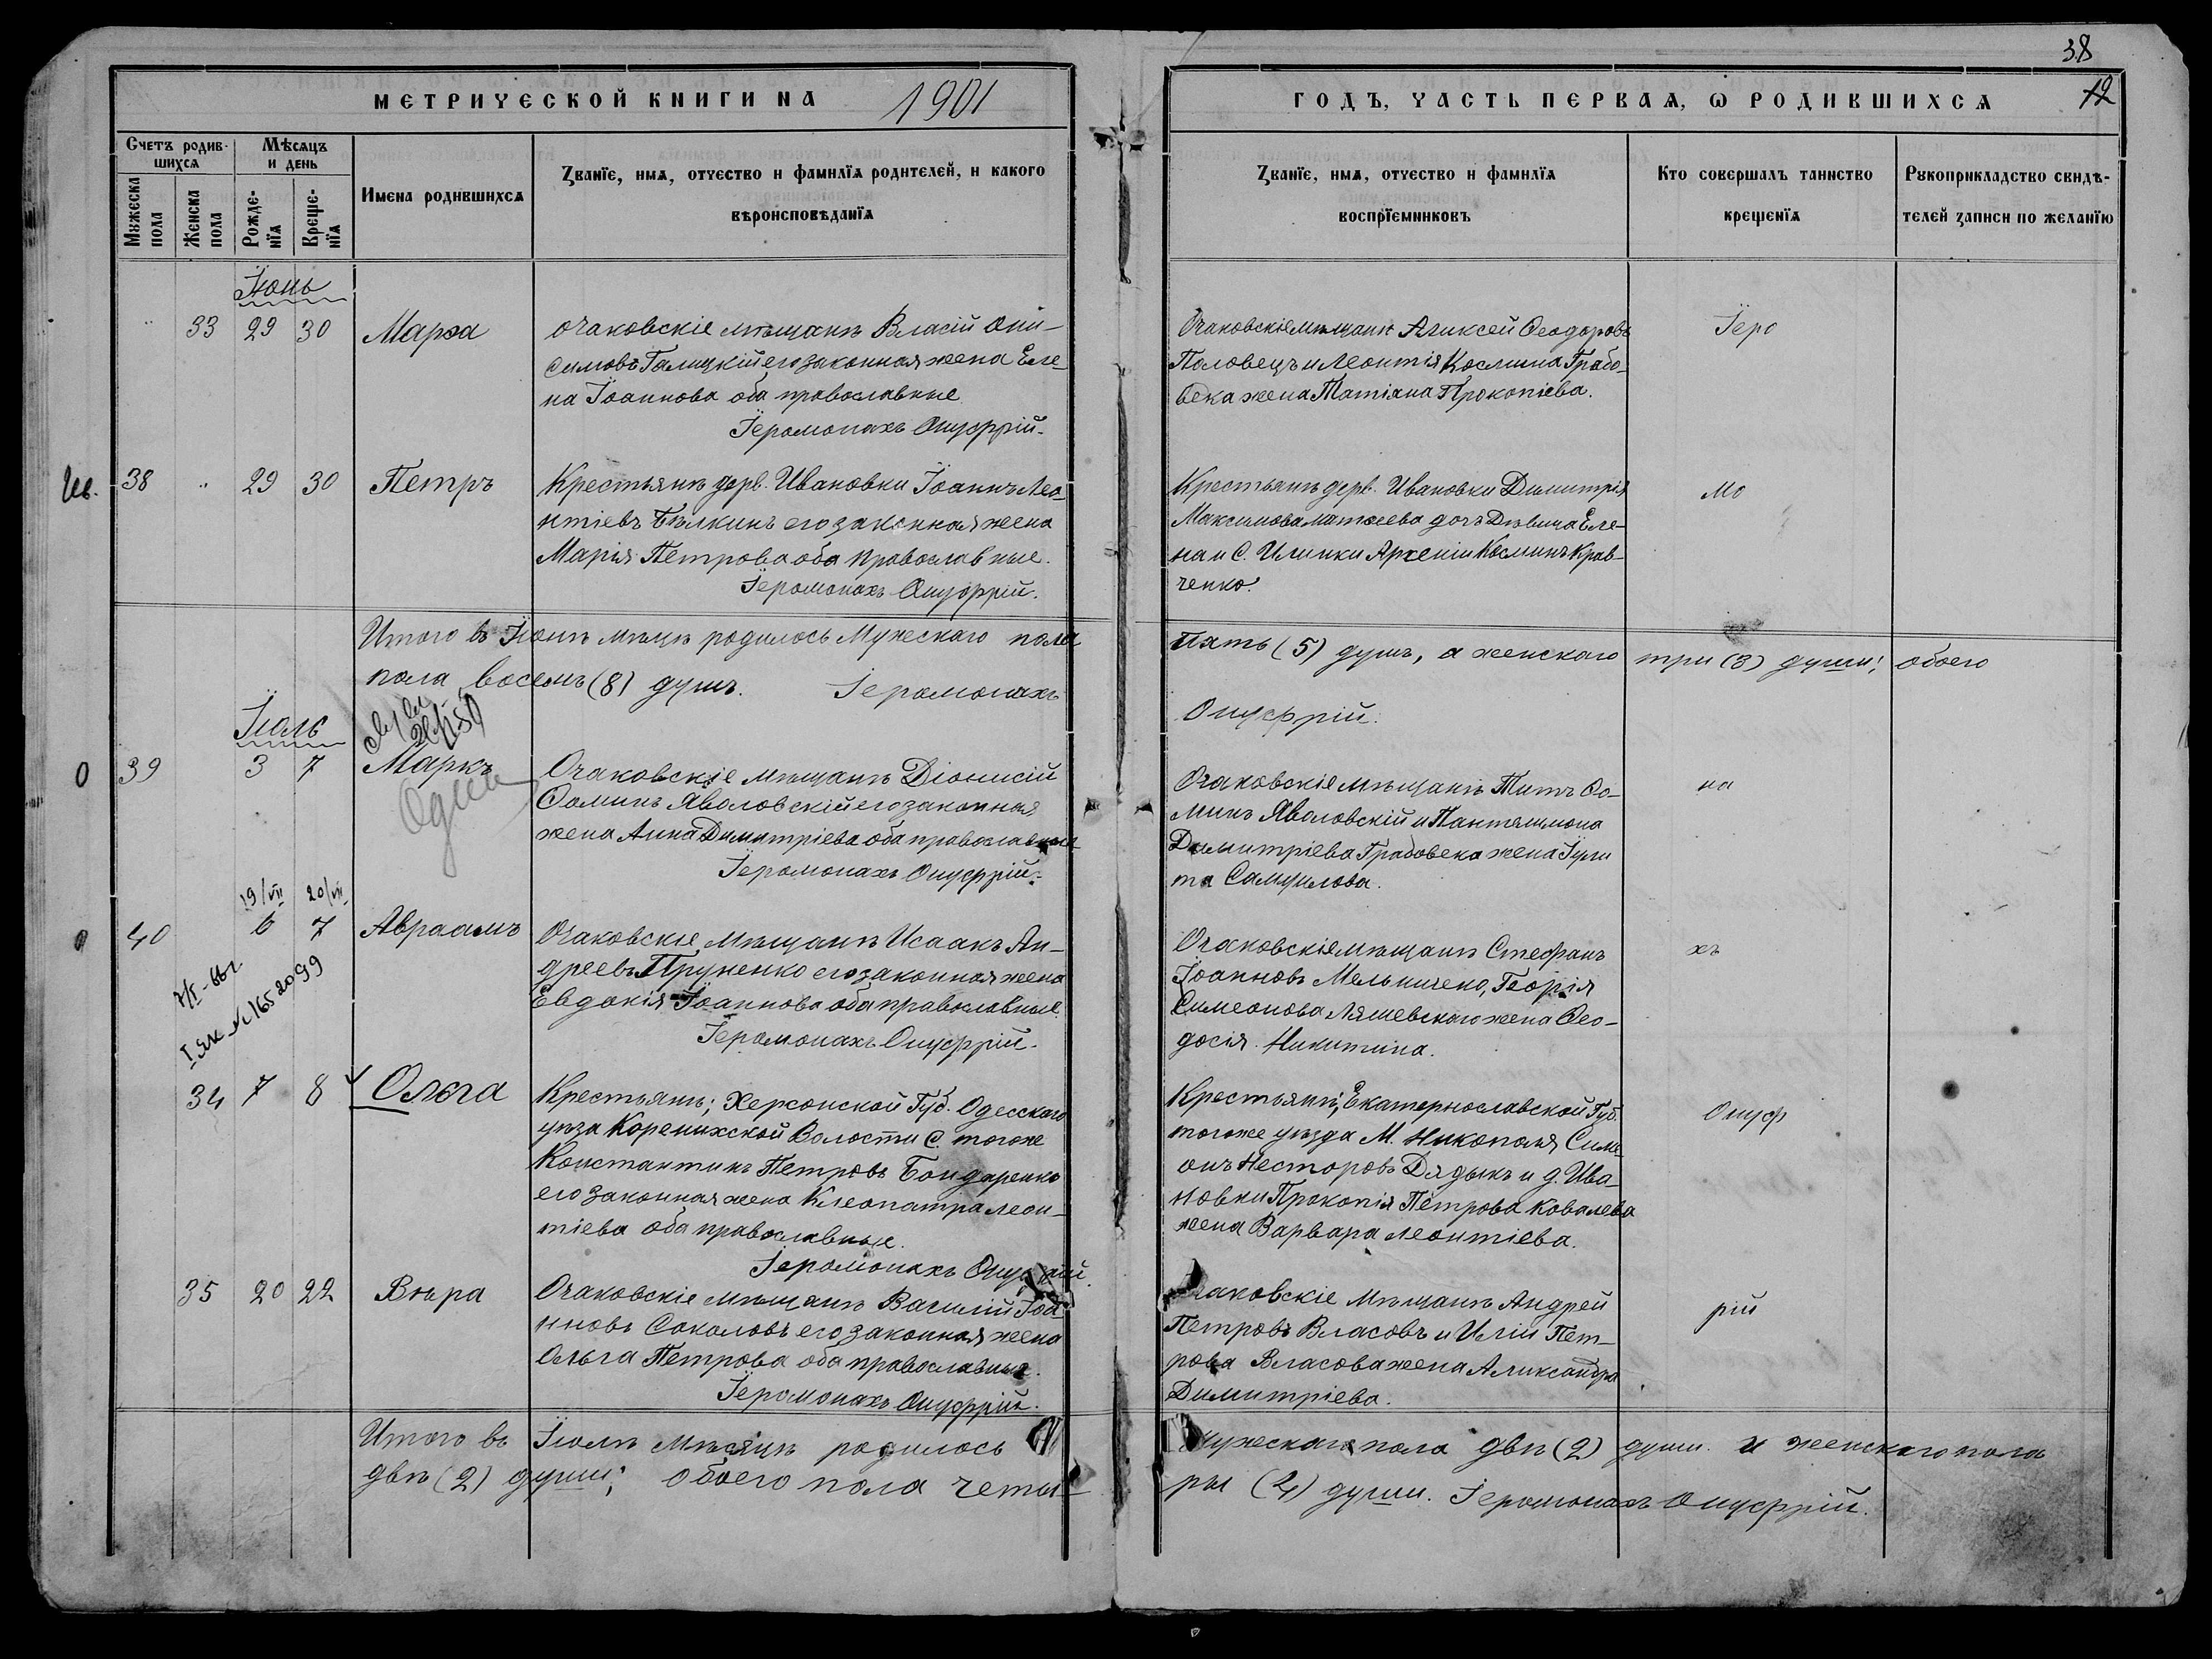 38
МЕТРИЧЕСКОЙ КНИГИ НА 1901
ГОДЪ, ЧАСТЬ ПЕРВАЯ, Ѡ РОДИВШИХСЯ 12
Счетъ родив-
шихся
Мѣсяцъ
и день
Мужеска
пола
Женска
пола
Рожде-
нїя
Креще-
нїя
Имена родившихся
Званїе, имя, отчество и фамилїя родителей, и какого
вѣроисповѣданїя
Званїе, имя, отчество и фамилїя
воспрїемниковъ
Кто совершалъ таинство
крещенїя
Рукоприкладство свидѣ-
телей записи по желанїю
Іюнь
" 33 29 30 Марѳа
Очаковскіе мѣщанъ Власій Они-
симовъ Галицкій его законная жена Еле-
на Іоаннова оба православные
Іеромонахъ Онуфрій.
Очаковскіе мѣщанъ Аликсей Ѳеодоровъ
Половецъ и Леонтія Космина Грабо-
века жена Татіана Прокопіева.
Іеро
38 " 29 30 Петръ
Крестьянъ дерв. Ивановки Іоаннъ Лео-
нтіевъ Бѣлкинъ его законная жена
Марія Петрова оба православные.
Іеромонахъ Онуфрій.
Крестьянъ дерв. Ивановки Димитрія
Максимова Матвеева дочъ Дѣвица Еле-
на и С. Илинки Арсеній Косминъ Крав-
ченко.
Мо
Итого въ Іюнѣ мѣцѣ родилось Мужескаго пола
пять (5) душъ, а женскаго три (3) души; обоего
пола восемъ (8) душъ. Іеромонахъ
Онуфрій.
Іюль
О 39 3 7 Маркъ
Очаковскіе мѣщанъ Діонисій
Ѳоминъ Яволовскій его законная
жена Анна Димитріева оба православные
Іеромонахъ Онуфрій.
Очаковскіе мѣщанъ Титъ Ѳо-
минъ Яволовскій и Пантелимона
Димитріева Грабовека жена Іули
та Самуилова.
на
19/VII 20/VII
0 40 6 7 Авраамъ
Очаковскіе мѣщанъ Исаакъ Ан-
дреевъ Пруненко его законная жена
Евдокія Іоаннова оба православные.
Іеромонахъ Онуфрій.
Очаковскіе мѣщанъ Стефанъ
Іоанновъ Мельничено, Георгія
Симеонова Ляшевскаго жена Ѳео-
досія Никитина.
хъ
34 7 8 Ольга
Крестьянъ; Херсонской Губ. Одесского
уѣза Коренихской Волости С. тогоже
Константинъ Петровъ Бондаренко
его законная жена Клеопатра Леон-
тіева оба православные.
Іеромонахъ Онуфрій.
Крестьянъ, Екатернославской Губ.
тогоже уѣзда М. Никополя Симе
онъ Несторовъ Дядыкъ и д. Ива-
новки Прокопія Петрова Ковалева
жена Варвара Леонтіева.
Онуф
35 20 22 Вѣра
Очаковскіе мѣщанъ Василій Іоа-
нновъ Соколовъ его законная жена
Ольга Петрова оба православные.
Іеромонахъ Онуфрій.
Очаковскіе мѣщанъ Андрей
Петровъ Власовъ и Иліи Пет-
рова Власова жена Аликсандра
Димитріева.
рій
Итого въ Іюлѣ Мѣсяцѣ родилось
Мужескаго пола двѣ (2) души. и женскаго пола
двѣ (2) души; обоего пола четы-
ры (4) души. Іеромонахъ Онуфрій.